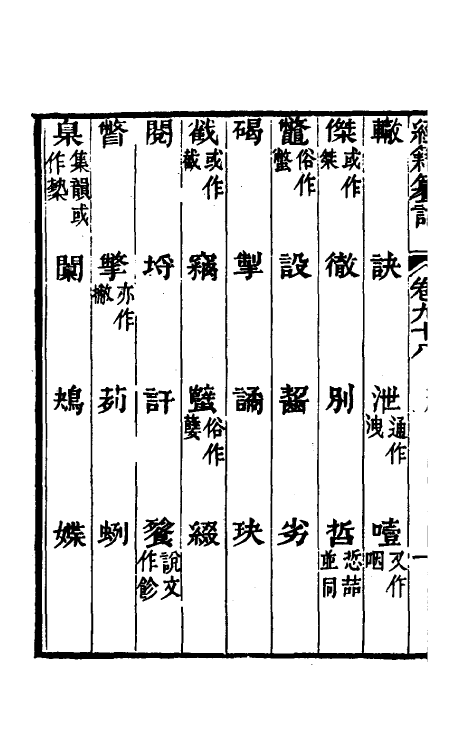 經籍籑詁 卷九十八
轍 訣 泄通作洩 噎又作咽
傑或作桀 徹 別 哲悊喆並同
鼈俗作鱉 設 齧 劣
碣 掣 譎 玦
截或作㦰 竊 蠥俗作孽 綴
閱 埒 訐 餮說文作飻
瞥 擎亦作撇 茢 蛚
臬集韻或作槷 闑 鴂 媟